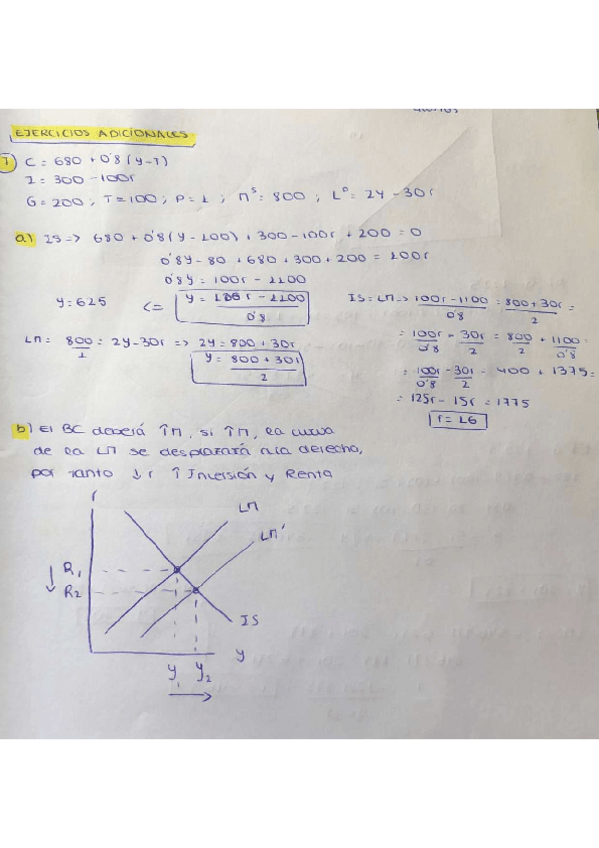 EJERCICIOS ADICIONALES
1 C = 680 + 0'8 (Y-T)
I = 300 - 100r
G = 200 ; T = 100 ; P = 1 ; M^s = 800 ; L^D = 2Y - 30r
a) IS => 680 + 0'8 (Y - 100) + 300 - 100r + 200 = 0
0'8Y - 80 + 680 + 300 + 200 = 100r
0'8Y = 100r - 1100
Y = 625 <= Y = 100r - 1100 / 0'8
LM = 800/1 = 2Y - 30r => 2Y = 800 + 30r
Y = 800 + 30r / 2
IS = LM => 100r - 1100 / 0'8 = 800 + 30r / 2 =
= 100r/0'8 - 30r/2 = 800/2 + 1100/0'8
= 100r/0'8 - 30r/2 = 400 + 1375 =
= 125r - 15r = 1775
r = 16
b) El BC deberá ↑M, si ↑M, la curva
de la LM se desplazará a la derecha,
por tanto ↓r ↑ Inversión y Renta
r
LM
LM'
↓ R1
R2
IS
Y
Y1 Y2
→